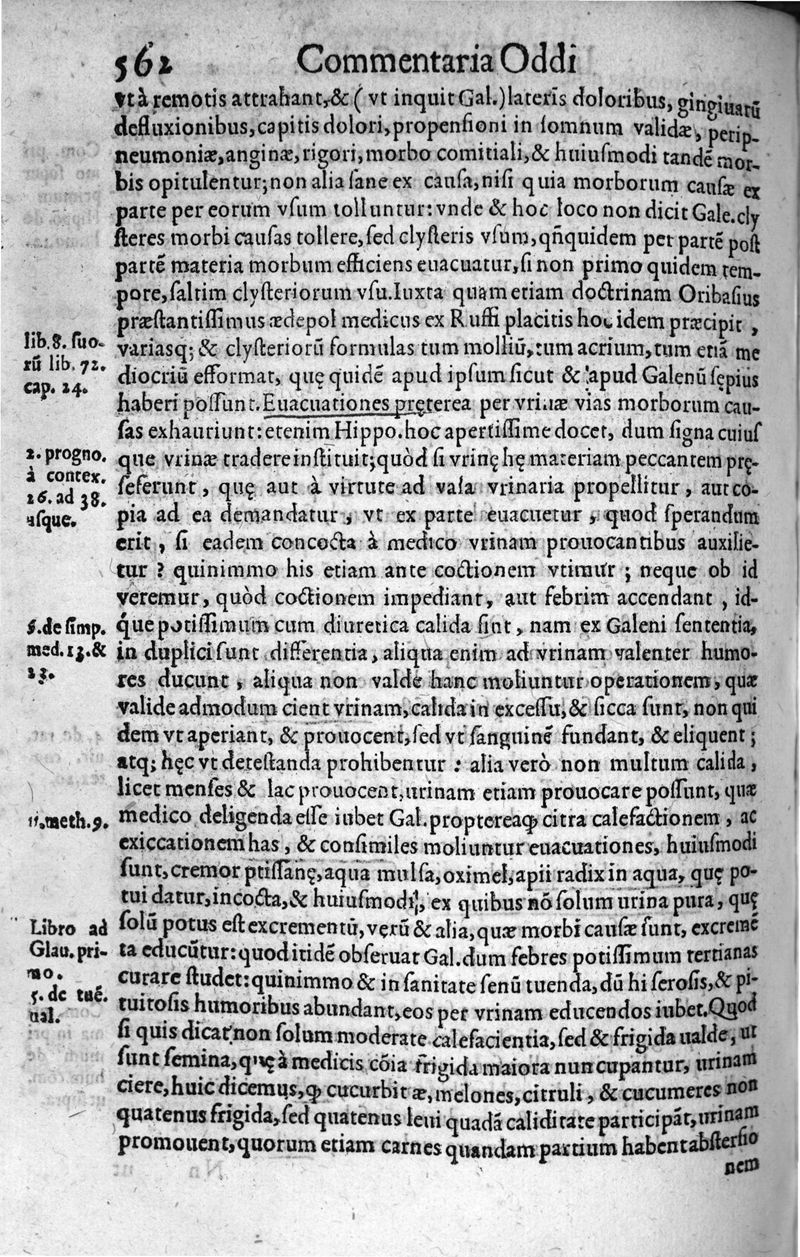 562 Commentaria Oddi
vt à remotis attrahant, & ( vt inquit Gal.) lateris doloribus, gingiuarũ
defluxionibus, capitis dolori, propensioni in somnum validæ, perip-
neumoniæ, anginæ, rigori, morbo comitiali, & huiusmodi tandẽ mor-
bis opitulentur; non alia sane ex causa, nisi quia morborum causæ ex
parte per eorum vsum tolluntur: vnde & hoc loco non dicit Gale. cly
steres morbi causas tollere, sed clysteris vsum, qñquidem per partẽ post
partẽ materia morbum efficiens euacuatur, si non primo quidem tem-
pore, saltim clysteriorum vsu. Iuxta quam etiam doctrinam Oribasius
præstantissimus ædepol medicus ex Ruffi placitis hoc idem præcipit,
lib. 8. suo-
rũ lib. 72.
cap. 24.
variasq; & clysteriorũ formulas tum molliũ, tum acrium, tum etiã me
diocriũ efformat, quę quidẽ apud ipsum sicut & apud Galenũ sępius
haberi possunt. Euacuationes pręterea per vrinæ vias morborum cau-
sas exhauriunt: etenim Hippo. hoc apertissime docet, dum signa cuius
2. progno.
à contex.
26. ad 38.
usque.
que vrinæ tradere instituit; quòd si vrinę hę materiam peccantem prę-
seferunt, quę aut à virtute ad vasa vrinaria propellitur, aut co-
pia ad ea demandatur, vt ex parte euacuetur, quod sperandum
erit, si eadem concocta à medico vrinam prouocantibus auxilie-
tur ? quinimmo his etiam ante coctionem vtimur; neque ob id
veremur, quòd coctionem impediant, aut febrim accendant, id-
5. de simp.
med. 13. &
23.
q́ue potissimum cum diuretica calida sint, nam ex Galeni sententia,
in duplici sunt differentia, aliqua enim ad vrinam valenter humo-
res ducunt, aliqua non valde hanc moliuntur operationem, quæ
valide admodum cient vrinam, calida in excessu, & sicca sunt, non qui
dem vt aperiant, & prouocent, sed vt sanguinẽ fundant, & eliquent;
atq; hęc vt detestanda prohibentur: alia verò non multum calida,
licet menses & lac prouocent, urinam etiam prouocare possunt, quæ
11. meth. 9.
medico deligenda esse iubet Gal. proptereaq̃ citra calefactionem, ac
exiccationem has, & consimiles moliuntur euacuationes, huiusmodi
sunt, cremor ptissanę, aqua mulsa, oximel, apii radix in aqua, quę po-
tui datur, incocta, & huiusmodi, ex quibus nõ solum urina pura, quę
Libro ad
Glau. pri-
mo.
5. de tuẽ.
ual.
solũ potus est excrementũ, verũ & alia, quæ morbi causæ sunt, excremẽ
ta educũtur: quod itidẽ obseruat Gal. dum febres potissimum tertianas
curare studet: quinimmo & in sanitate senũ tuenda, dũ hi serosis, & pi-
tuitosis humoribus abundant, eos per vrinam educendos iubet. Quod
si quis dicat non solum moderate calefacientia, sed & frigida ualde, ut
sunt semina, quę à medicis cõia frigida maiora nuncupantur, urinam
ciere, huic dicemus, q̃ cucurbitæ, melones, citruli, & cucumeres non
quatenus frigida, sed quatenus leui quadã caliditate participãt, urinam
promouent, quorum etiam carnes quandam partium habent abstersio
nem